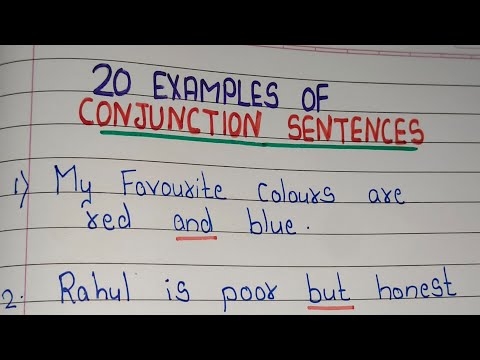 20 EXAMPLES OF
CONJUNCTION SENTENCES
1) My Favourite Colours are
red and blue.
2. Rahul is poor but honest